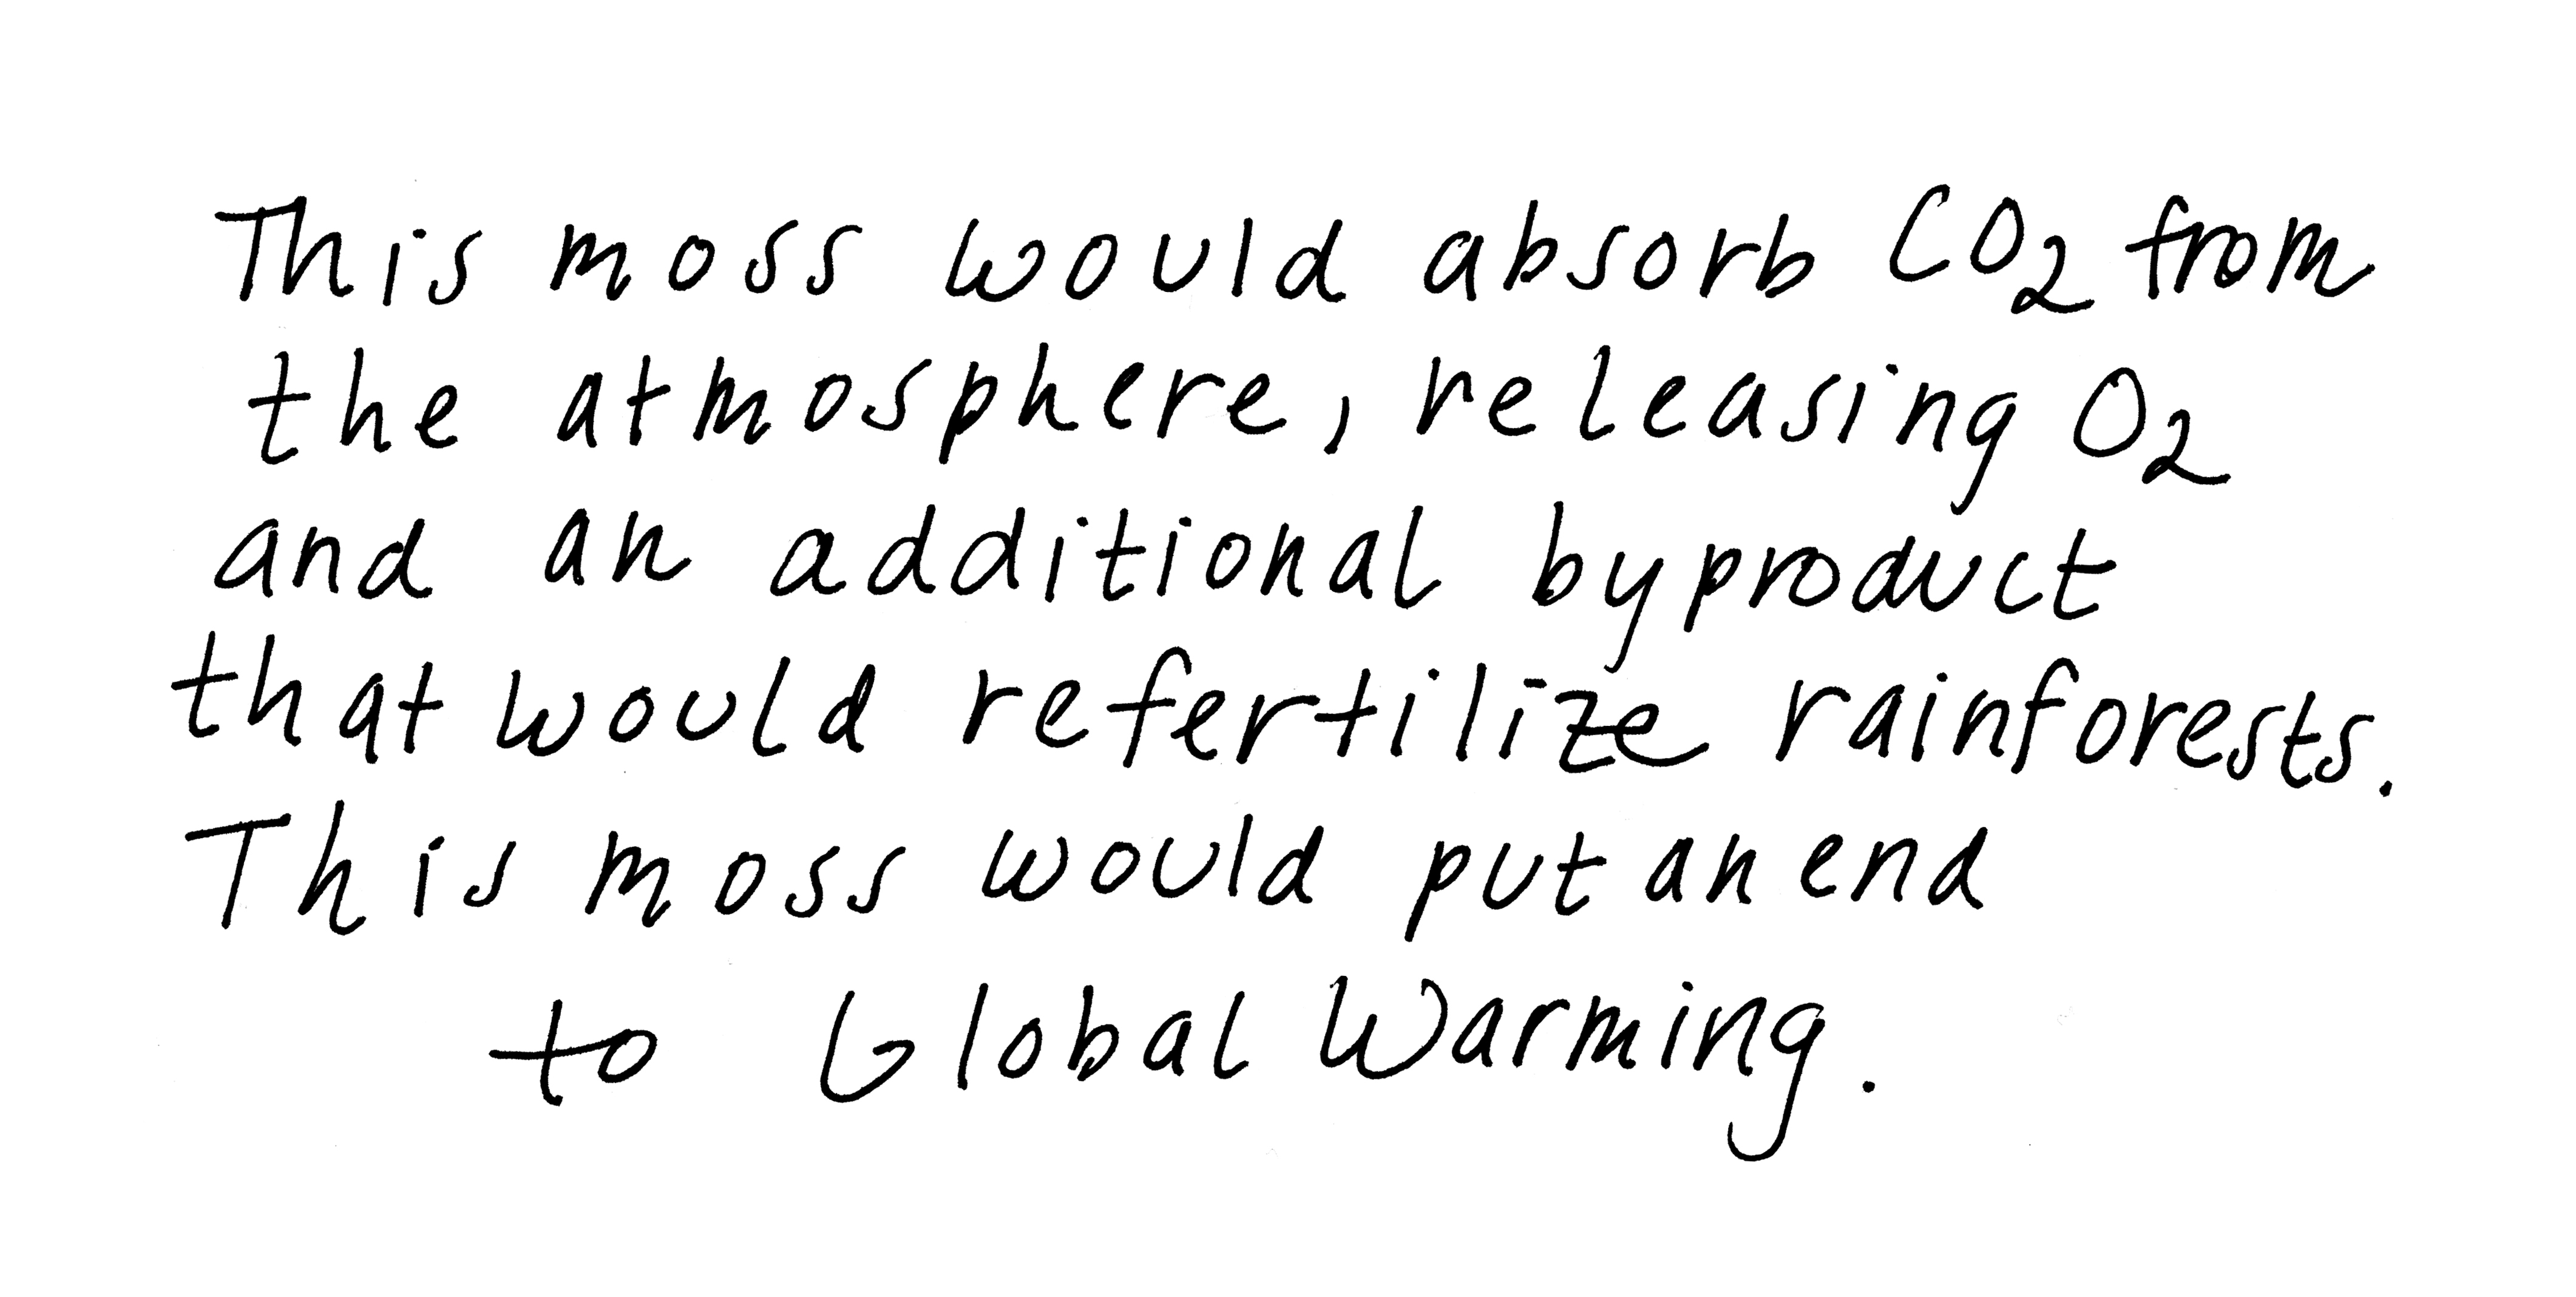 This moss would absorb CO₂ from
the atmosphere, releasing O₂
and an additional byproduct
that would refertilize rainforests.
This moss would put an end
to Global Warming.